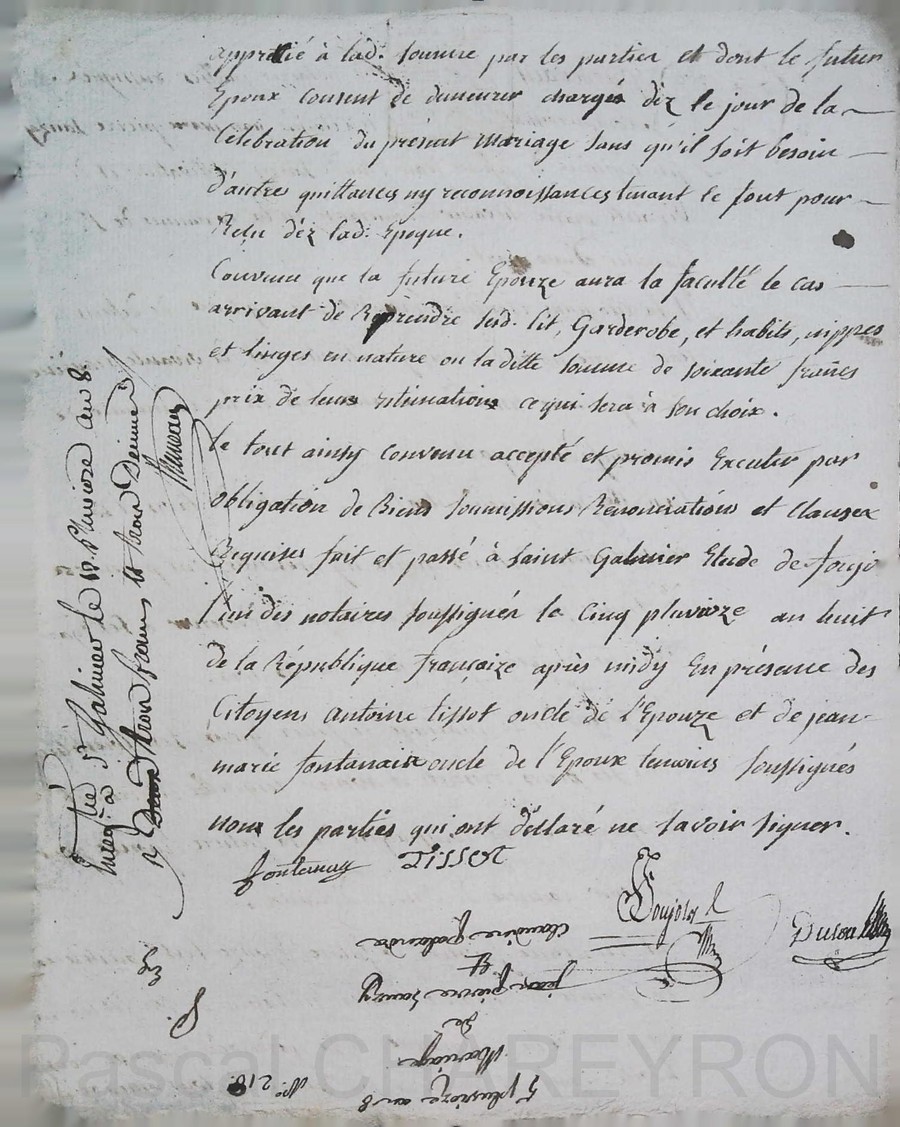 apprétié à lad. somme par les parties et dont le futur
Epoux consent de demeurer chargé déz le jour de la
Célébration du présent mariage sans qu'il soit besoin
d'autre quittances ny reconnoissances tenant le tout pour
Reçu déz lad. Epoque.
Convenu que la future Epouze aura la faculté le cas
arrivant de Reprendre sesd. lit, Garderobe, et habits, nippes
et linges en nature ou la ditte somme de soixante francs
prix de leurs estimations ce qui sera à son choix.
le tout ainsy convenu accepté et promis Executer par
obligation de Biens soumissions Renonciations et Clauses
Requises fait et passé à Saint Galmier Etude de foujols
l'un des notaires soussignés le Cinq pluvioze an huit
de la République françaize après midy En présence des
Citoyens antoine tissot oncle de l'Epouze et de jean
marie fontanaix oncle de l'Epoux temoins soussignés
non les parties qui ont déllaré ne savoir signer.
fontenay TISSOT
Foujols
Enregtré à St Galmier le 12 Pluviose an 8.
R deux francs
5 pluvioze an 8
Mariage
De
jean pierre
Et
claudine
No. 218
Pascal CHAREYRON